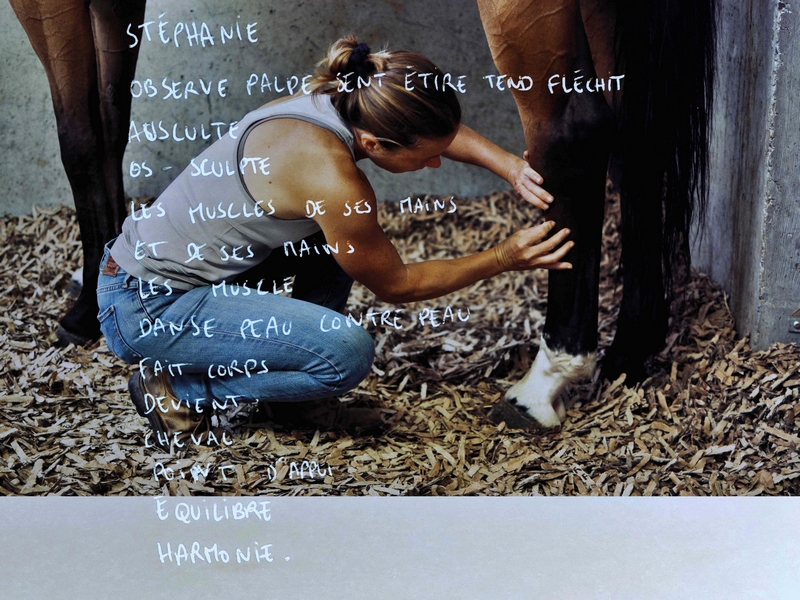 STÉPHANIE
OBSERVE PALPE SENT ÉTIRE TEND FLÉCHIT
AUSCULTE
OS - SCULPTE
LES MUSCLES DE SES MAINS
ET DE SES MAINS
LES MUSCLE
DANSE PEAU CONTRE PEAU
FAIT CORPS
DEVIENT
CHEVAL
POINT D'APPUI
EQUILIBRE
HARMONIE.